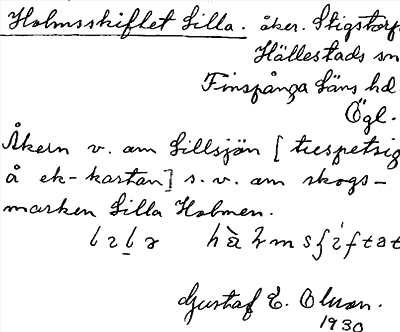 Holmsskiftet Lilla. åker. Stigstorp
Hällestads sn
Finspånga läns hd.
Ögl.
Åkern v. om Lillsjön [ trespetsig
å ek-kartan] s.v. om skogs-
marken Lilla Holmen.
Gustaf E. Olsson.
1930